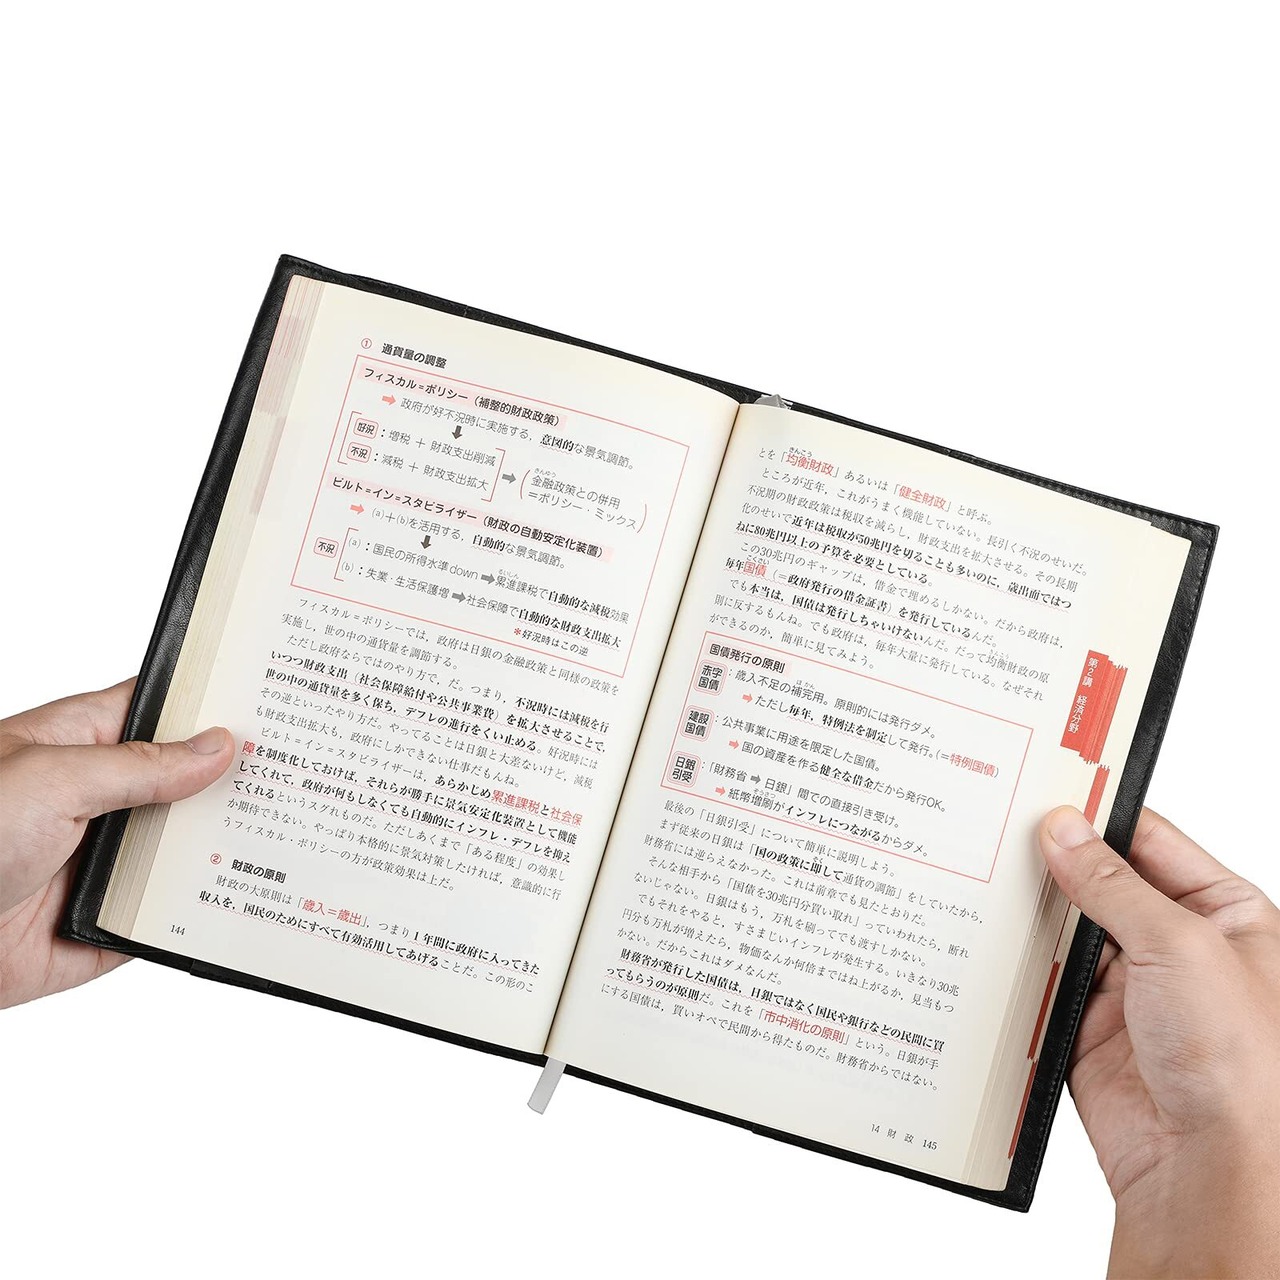 ① 通貨量の調整
フィスカル=ポリシー（補整的財政政策）
➡ 政府が好不況時に実施する，意図的な景気調節。
好況：増税 ＋ 財政支出削減
不況：減税 ＋ 財政支出拡大
➡（金融政策との併用
＝ポリシー・ミックス）
きんゆう
ビルト=イン=スタビライザー（財政の自動安定化装置）
➡ (a)＋(b)を活用する，自動的な景気調節。
不況
(a)：国民の所得水準 down ➡累進課税で自動的な減税効果
るいしん
(b)：失業・生活保護増 ➡社会保障で自動的な財政支出拡大
＊好況時はこの逆
フィスカル=ポリシーでは，政府は日銀の金融政策と同様の政策を
実施し，世の中の通貨量を調節する。
ただし政府ならではのやり方で，だ。つまり，不況時には減税を行
いつつ財政支出（社会保障給付や公共事業費）を拡大させることで，
世の中の通貨量を多く保ち，デフレの進行をくい止める。好況時には
その逆といったやり方だ。やってることは日銀と大差ないけど，減税
も財政支出拡大も，政府にしかできない仕事だもんね。
ビルト=イン=スタビライザーは，あらかじめ累進課税と社会保
障を制度化しておけば，それらが勝手に景気安定化装置として機能
してくれて，政府が何もしなくても自動的にインフレ・デフレを抑え
てくれるというスグれものだ。ただしあくまで「ある程度」の効果し
か期待できない。やっぱり本格的に景気対策したければ，意識的に行
うフィスカル・ポリシーの方が政策効果は上だ。
② 財政の原則
財政の大原則は「歳入＝歳出」，つまり1年間に政府に入ってきた
収入を，国民のためにすべて有効活用してあげることだ。この形のこ
144
きんこう
とを「均衡財政」あるいは「健全財政」と呼ぶ。
ところが近年，これがうまく機能していない。長引く不況のせいだ。
不況期の財政政策は税収を減らし，財政支出を拡大させる。その長期
化のせいで近年は税収が50兆円を切ることも多いのに，歳出面ではつ
ねに80兆円以上の予算を必要としている。
この30兆円のギャップは，借金で埋めるしかない。だから政府は，
こくさい
毎年国債（＝政府発行の借金証書）を発行しているんだ。
でも本当は，国債は発行しちゃいけないんだ。だって均衡財政の原
きんこう
則に反するもんね。でも政府は，毎年大量に発行している。なぜそれ
ができるのか，簡単に見てみよう。
国債発行の原則
赤字国債：歳入不足の補完用。原則的には発行ダメ。
ほかん
➡ ただし毎年，特例法を制定して発行。（＝特例国債）
建設国債：公共事業に用途を限定した国債。
➡ 国の資産を作る健全な借金だから発行OK。
日銀引受：「財務省 ➡ 日銀」間での直接引き受け。
➡ 紙幣増刷がインフレにつながるからダメ。
ぞうさつ
最後の「日銀引受」について簡単に説明しよう。
まず従来の日銀は「国の政策に即して通貨の調節」をしていたから，
そく
財務省には逆らえなかった。これは前章でも見たとおりだ。
そんな相手から「国債を30兆円分買い取れ」っていわれたら，断れ
ないじゃない。日銀はもう，万札を刷ってでも渡すしかない。
でもそれをやると，すさまじいインフレが発生する。いきなり30兆
円分も万札が増えたら，物価なんか何倍まではね上がるか，見当もつ
かない。だからこれはダメなんだ。
財務省が発行した国債は，日銀ではなく国民や銀行などの民間に買
ってもらうのが原則だ。これを「市中消化の原則」という。日銀が手
にする国債は，買いオペで民間から得たものだ。財務省からではない。
14 財 政 145
第2講 経済分野